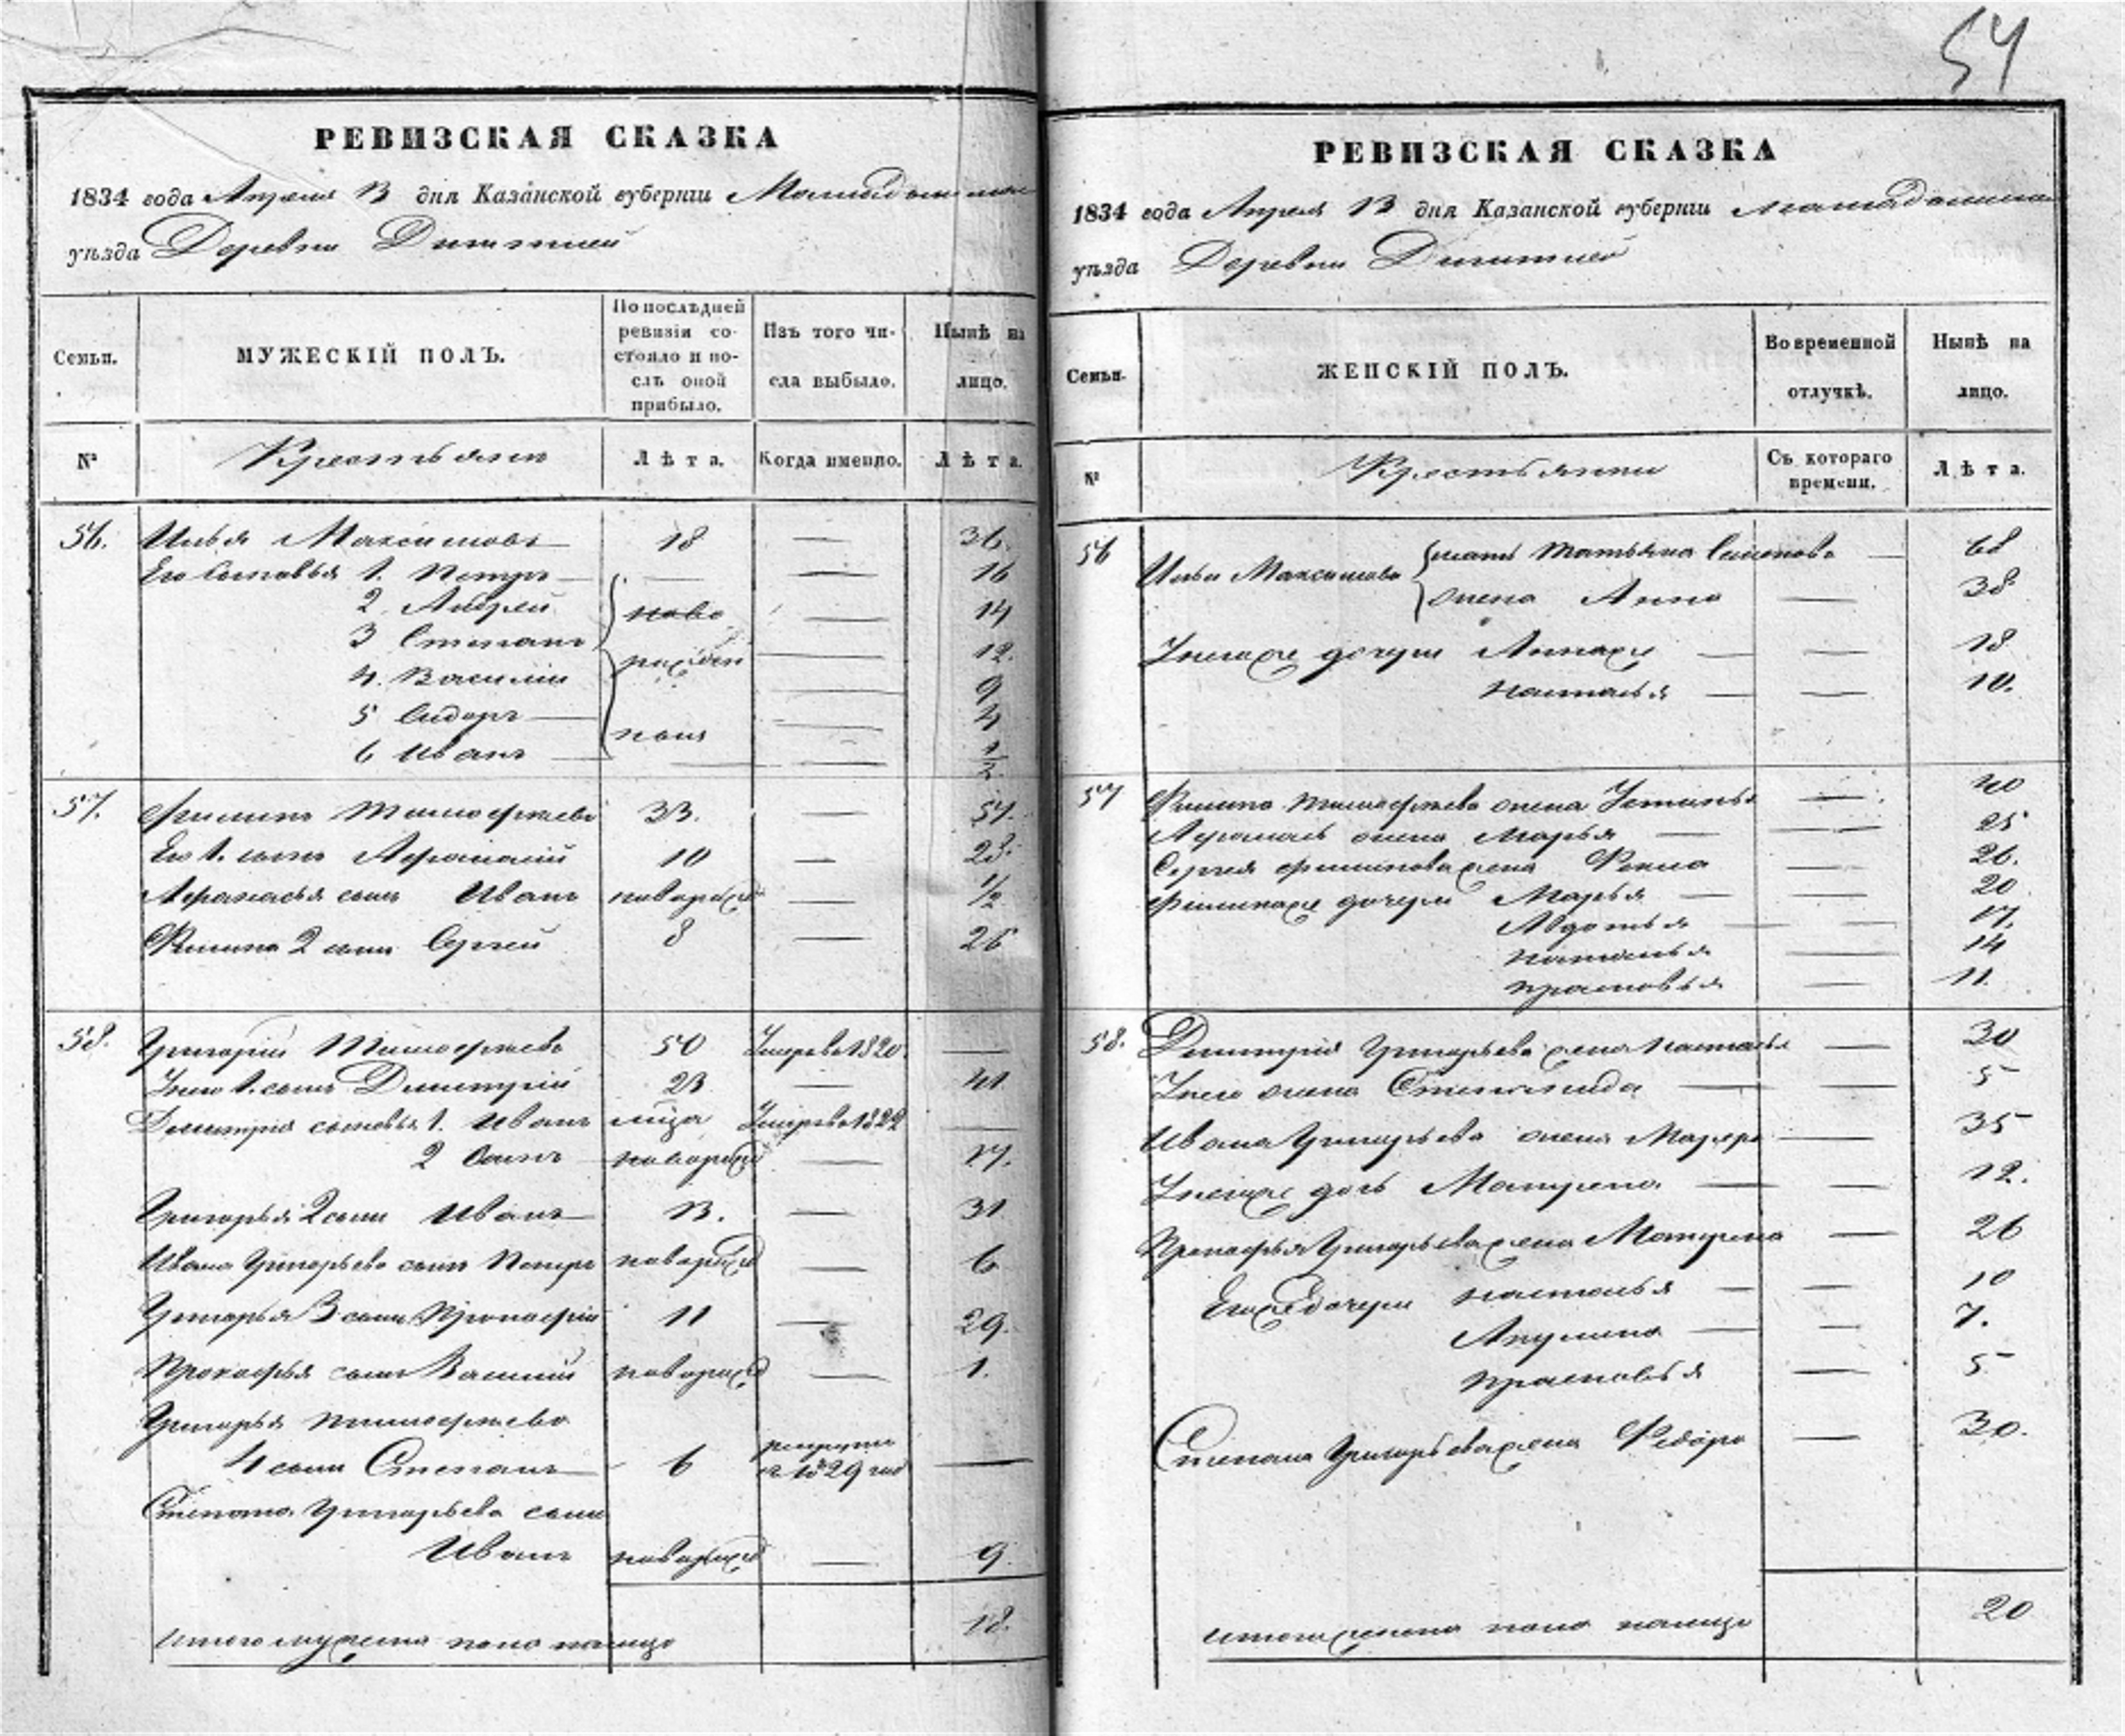 54
РЕВИЗСКАЯ СКАЗКА
1834 года Апреля 13 дня Казанской губернии
уѣзда Деревни
Семьи.
МУЖЕСКІЙ ПОЛЪ.
По послѣдней ревизіи состояло и послѣ оной прибыло.
Изъ того числа выбыло.
Нынѣ на лицо.
№
Крестьяне
Лѣта.
Когда именно.
Лѣта.
56. Илья Максимовъ 18 — 36.
Его сыновья 1. Петръ — — 16
2. Андрей ново — 14
3 Степанъ — 12.
4. Василий рожден — 9
5 Сидоръ — 4
6 Иванъ ныя — 1/2
57. Филипъ Тимофеевъ 33. — 51.
Ево 1. сынъ Афанасий 10 — 28.
Афанасья сынъ Иванъ новорожд — 1/2
Филипа 2 сынъ Сергей 8 — 26
58. Григорий Тимофеевъ 50 Умеръ въ 1820 —
У него 1. сынъ Димитрий 23 — 41
Димитрия сыновья 1. Иванъ Умеръ въ 1822 —
2 новорожд — 17.
Григорья 2 сынъ Иванъ 13. — 31
Ивана Григорьева сынъ Петръ новорожд — 6
Григорья 3 сынъ Прокофий 11 — 29.
Прокофья сынъ Василий новорожд — 1.
Григорья Тимофеева
4 сынъ Степанъ 6 рекруты въ 1829 год —
Степана Григорьева сынъ
Иванъ новорожд — 9.
Итого мужеска пола налицо 18.
РЕВИЗСКАЯ СКАЗКА
1834 года Апреля 13 дня Казанской губернии
уѣзда Деревни
Семьи.
ЖЕНСКІЙ ПОЛЪ.
Во временной отлучкѣ.
Нынѣ на лицо.
№
Крестьянки
Съ котораго времени.
Лѣта.
56 Ильи Максимова мать Татьяна Семенова — 68
жена Анна — 38
У него же дочери — 18
Наталья — 10.
57 Филипа Тимофеева жена Устинья — 40
Афанасья жена Марья — 25
Сергея Филипова жена Фекла — 26.
Филипа же дочери Марья — 20
Авдотья — 17.
Наталья — 14
Прасковья — 11.
58. Димитрия Григорьева жена Наталья — 30
У него жена Степанида — 5
Ивана Григорьева жена — 35
У него же дочь Матрена — 12.
Прокофья Григорьева жена Матрена — 26
Его же дочери Наталья — 10
Акулина — 7.
Прасковья — 5
Степана Григорьева жена Федора — 30.
Итого женска пола налицо 20